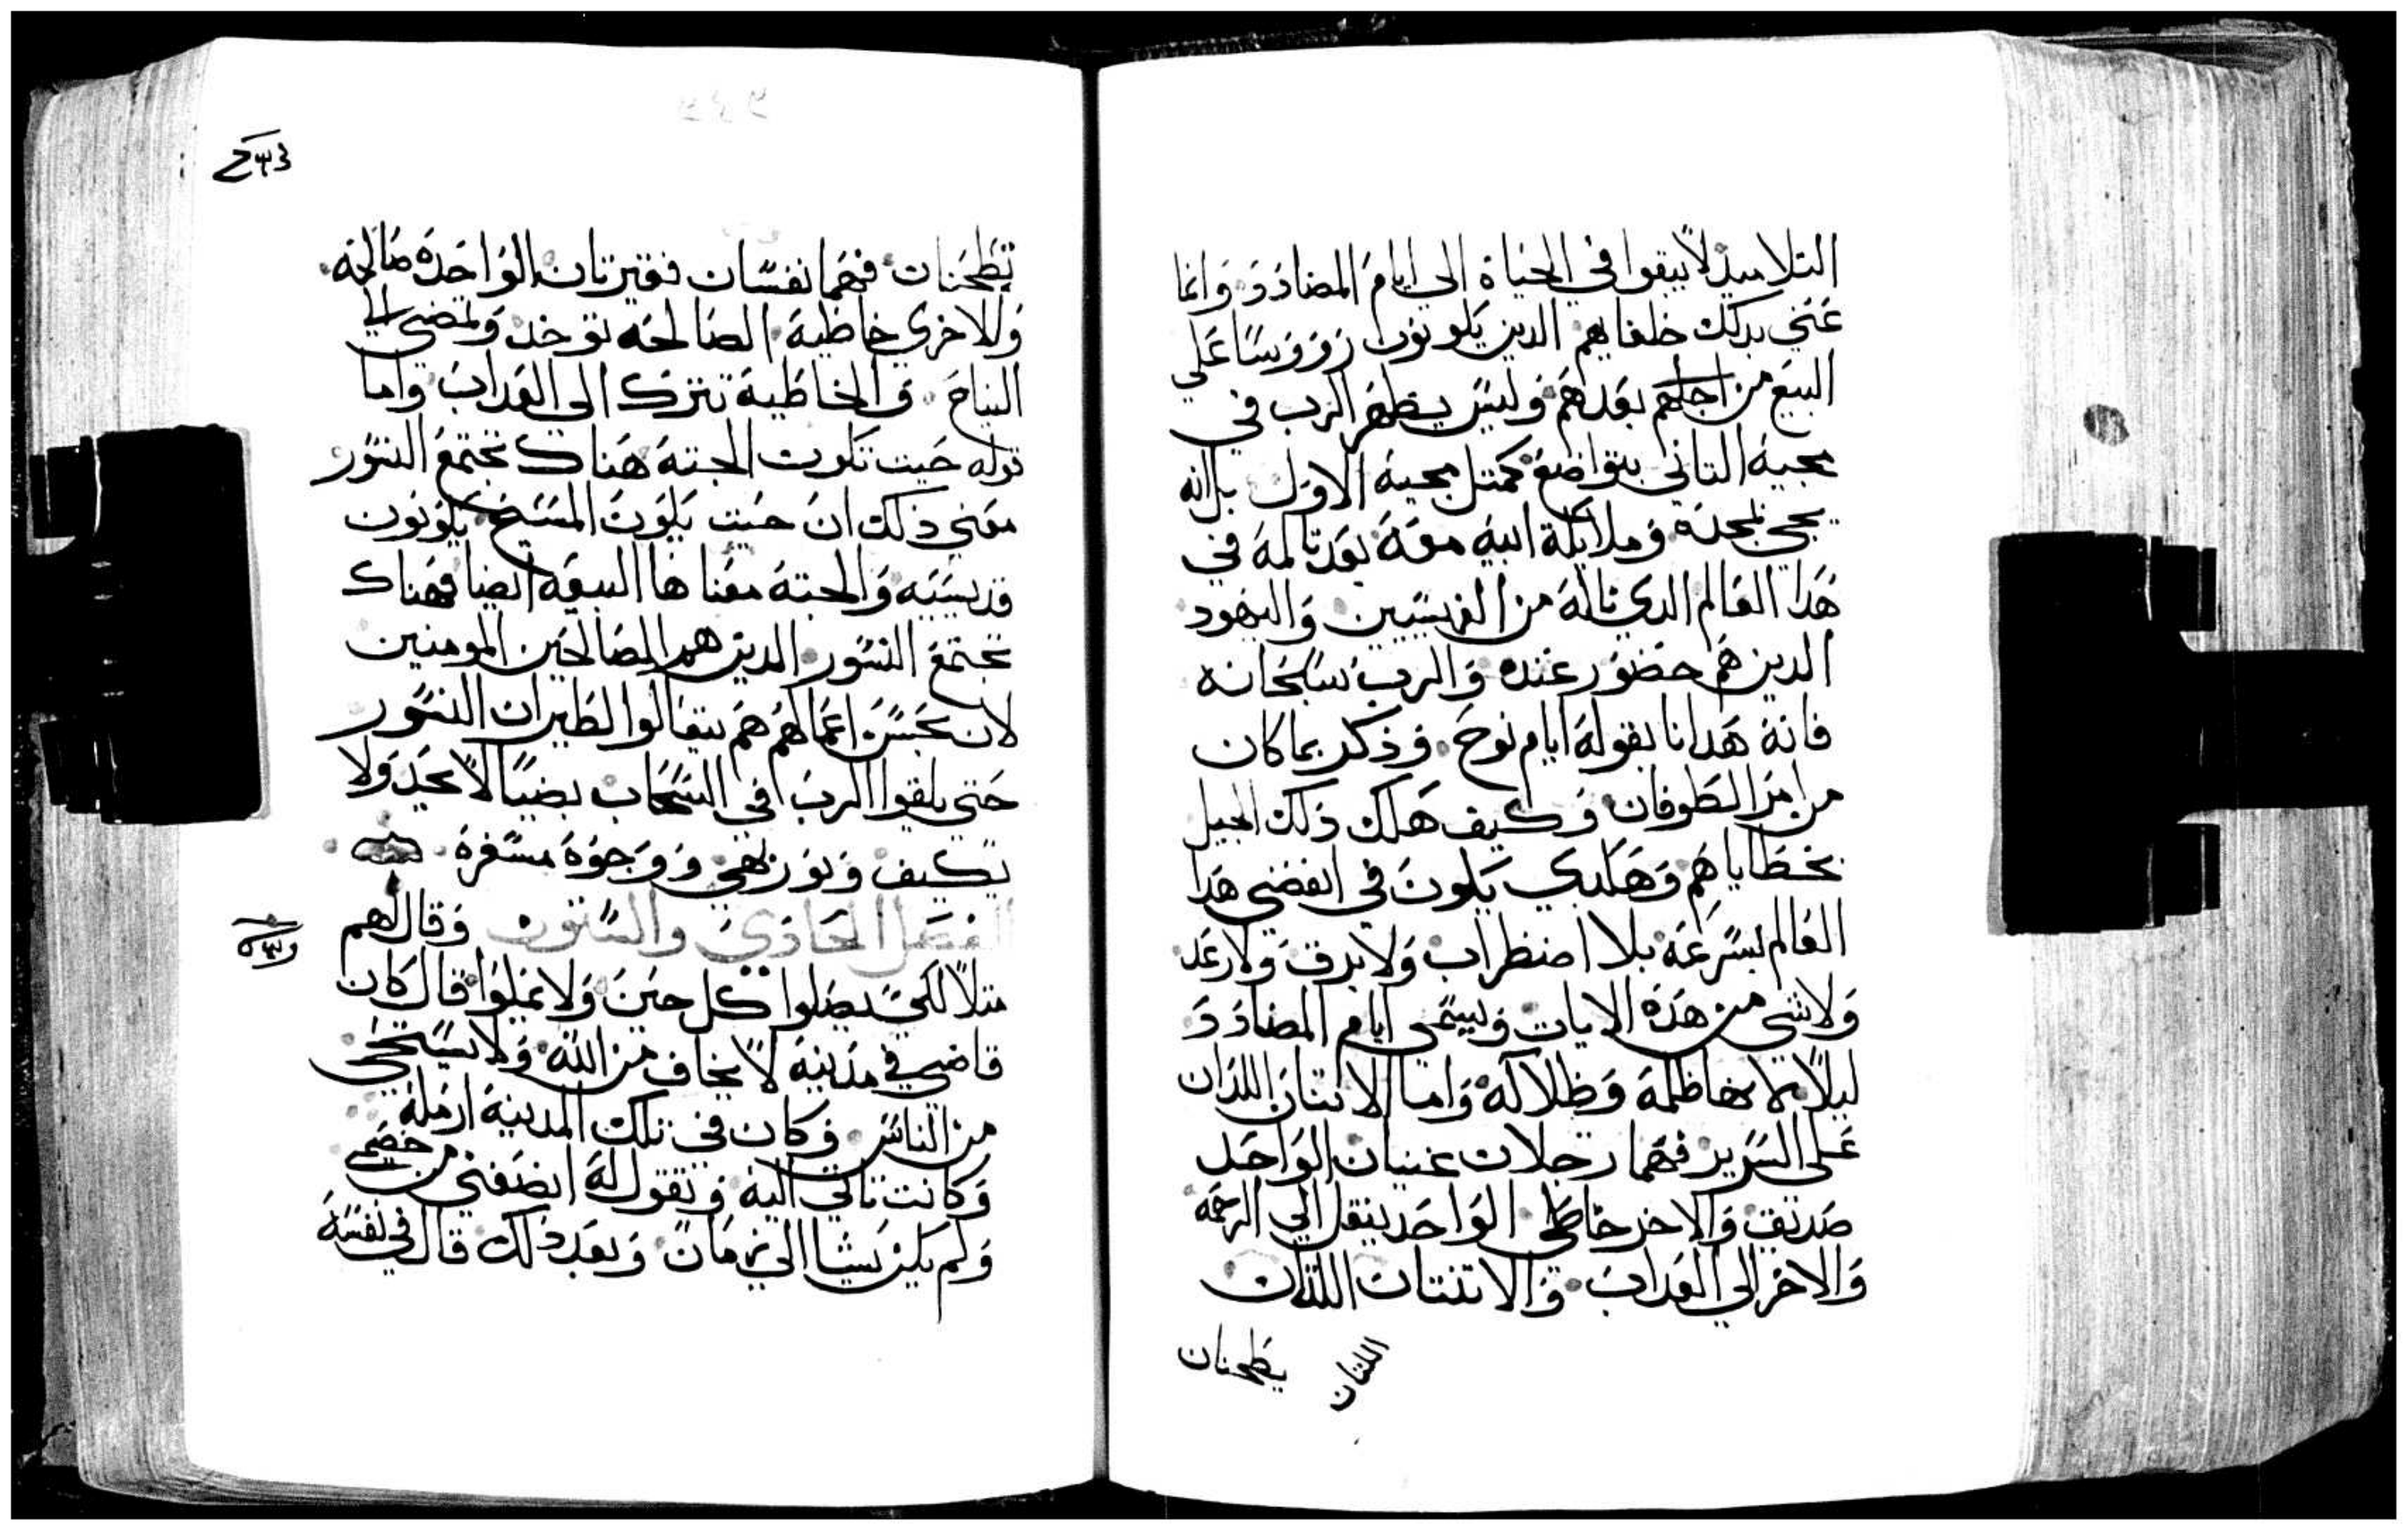 التلاميذ لا يبقوا في الحياة الي ايام المضادد وانما
عني بدلك خلفايهم الدين يكونون رووسا علي
البيع من اجلهم بعدهم وليس يظهر الرب في
مجيه التاني بتواضع كمتل مجيه الاول بل انه
يجي بمجده وملايكة ابيه معه بعد تالمه في
هدا العالم الدي ناله من الفريسيين واليهود
الدين هم حضور عنده والرب سبحانه
فانه هدانا بقوله ايام نوح وذكر بما كان
من امر الطوفان وكيف هلك ذلك الجيل
بخطاياهم وهكدي يكون في انقضي هدا
العالم بسرعه بلا اضطراب ولا برق ولا رعد
ولا شي من هذه الايات ويسمي ايام المضادد
ليلا لانها ظلمة وظلاله واما الاتنان اللدان
علي السرير فهما رجلان غنيان الواحد
صديق والاخر خاطي الواحد ينقل الي الرحمة
والاخر الي العداب والاتنتان اللتان
اللتان
يطحنان
تطحنان فهما نفسان فقيرتان الواحدة صالحه
والاخري خاطية الصالحه توخد وتمضي الي
النياح والخاطية تترك الي العداب واما
قوله حيت تكون الجتة هناك تجتمع النسور
معني ذلك ان حيت يكون المسيح يكونون
قديسيه والجتة معناها البيعه ايضا فهناك
تجتمع النسور الدين هم الصالحين المومنين
لان بحسن اعمالهم هم يتعالوا لطيران النسور
حتي يلقوا الرب في السحاب بضيا لا يحد ولا
يكيف ونور بهي ووجوه مسفرة
الفصل الحادي والستون وقال لهم
متلا لكي يصلوا كل حين ولا يملوا قال كان
قاضي في مدينة لا يخاف من الله ولا يستحي
من الناس وكان في تلك المدينة ارملة
وكانت تاتي اليه وتقول له انصفني من خصمي
ولم يكن يشا الي زمان وبعد دلك قال في نفسه